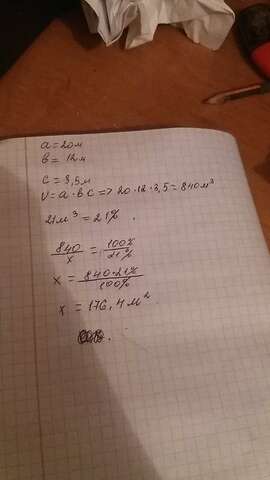 a = 20м
в = 12м
c = 3,5м
V = a · в c => 20 · 12 · 3,5 = 840м³
21м³ = 21% .
840/x = 100%/21%
x = 840·21%/100%
x = 176,4 м²